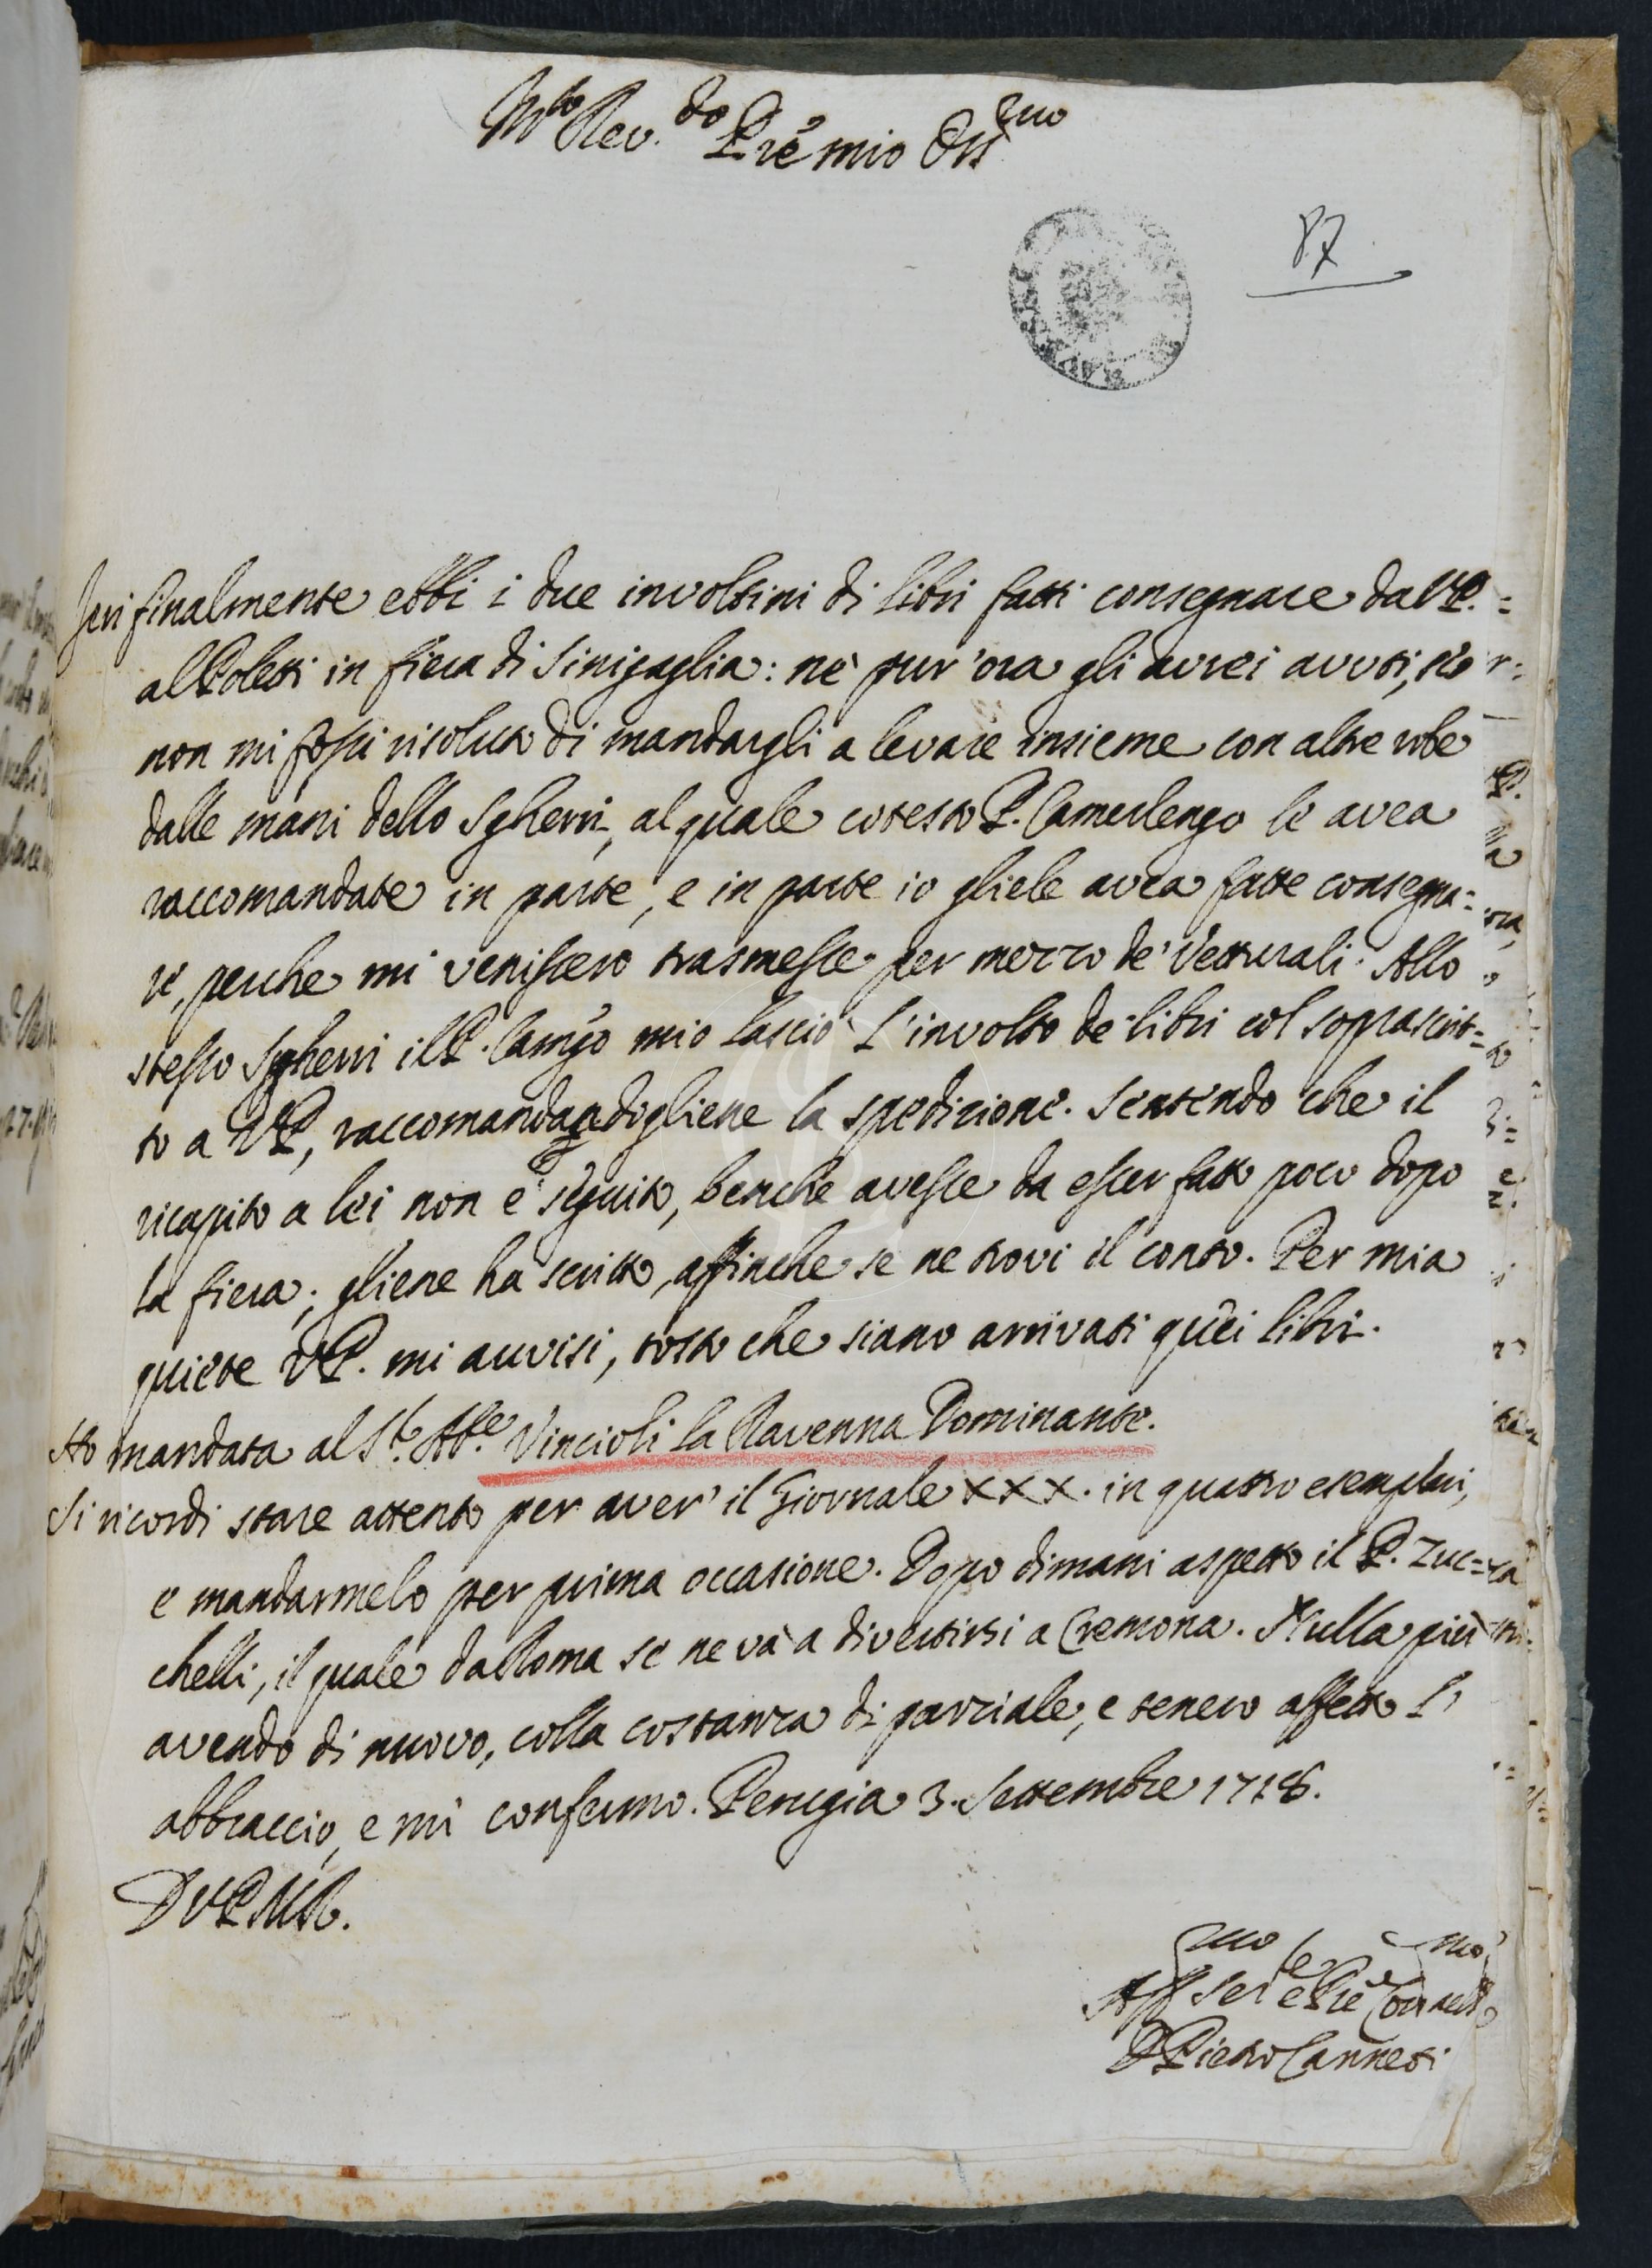 M.to Rev.do P.re mio Oss.mo
87
Jeri finalmente ebbi i due involtini di libri fatti consegnare da V.P.
al Poletti in fiera di Sinigaglia: nè pur' ora gli avrei avuti, se
non mi fossi risoluto di mandargli a levare insieme con altre robe
dalle mani dello Sgherri, al quale cotesto P. Camerlengo le avea
raccomandate in parte, e in parte io gliele avea fatte consegna=
re, perche mi venissero trasmesse per mezzo de' Vetturali. Allo
stesso Sgherri il P. Camgo mio lasciò l'involto de' libri col soprascrit=
to a VP, raccomandandogliene la spedizione. Sentendo che il
ricapito a lei non è seguito, benche avesse da esser fatto poco dopo
la fiera; gliene ha scritto, affinche se ne trovi il conto. Per mia
quiete VP. mi avvisi, tosto che siano arrivati quei libri.
Ho mandata al S.r Ab.e Vincioli la Ravenna Dominante.
Si ricordi stare attento per aver' il Giornale XXX. in quattro esemplari,
e mandarmelo per prima occasione. Dopo dimani aspetto il P. Zuc=
chelli, il quale da Roma se ne và a divertirsi a Cremona. Nulla più
avendo di nuovo, colla costanza di parziale, e tenero affetto l'
abbraccio, e mi confermo. Perugia 3. Settembre 1718.
D V P M R.
Aff.mo Ser.e e F.re
D Pietro Canneti